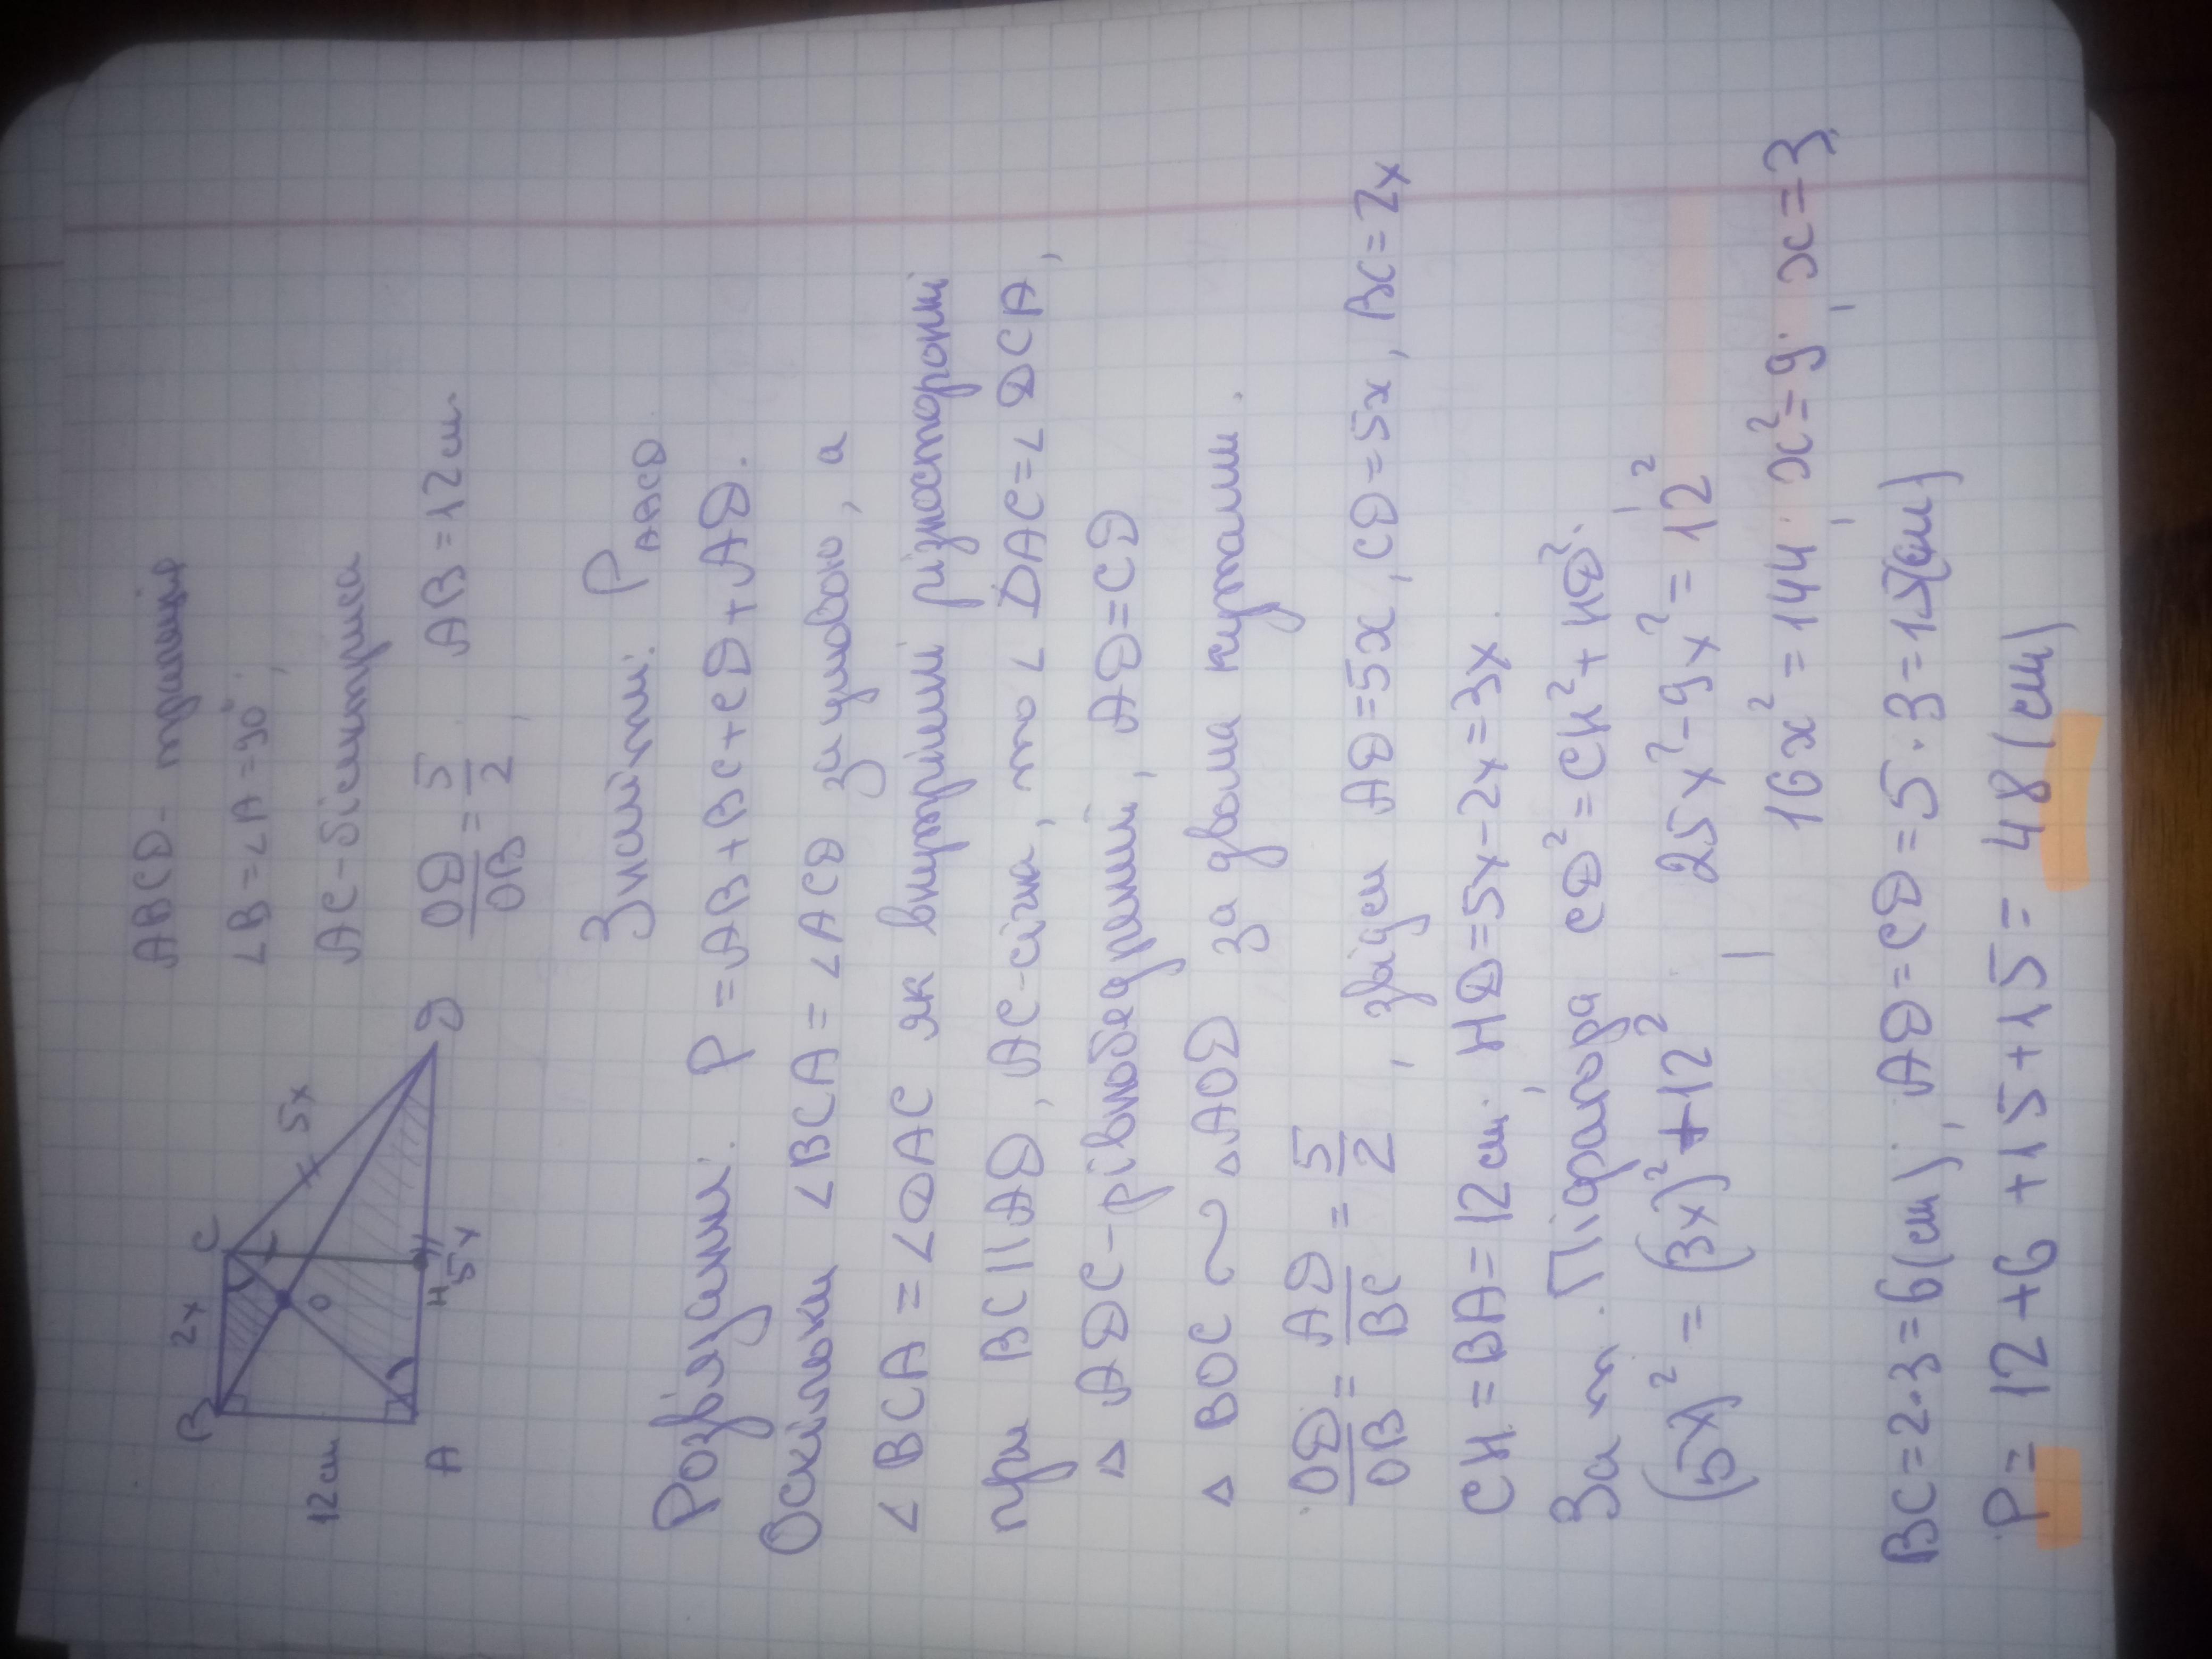 ABCD - трапеція
∠B = ∠A = 90°;
AC - бісектриса
OD/OB = 5/2, AB = 12 см.
B 2x C
5x
12 см
O
A H 5x D
Знайти: P ABCD
Розв'язання: P = AB + BC + CD + AD.
Оскільки ∠BCA = ∠ACD за умовою, а
∠BCA = ∠DAC як внутрішні різносторонні
при BC || AD, AC - січна, то ∠DAC = ∠DCA,
△ ADC - рівнобедрений, AD = CD
△ BOC ∼ △AOD за двома кутами.
OD/OB = AD/BC = 5/2, звідси AD = 5x, CD = 5x, BC = 2x
CH = BA = 12 см; HD = 5x - 2x = 3x.
За т. Піфагора CD² = CH² + HD²;
(5x)² = (3x)² + 12², 25x² - 9x² = 12²
16x² = 144; x² = 9; x = 3
BC = 2·3 = 6 (см); AD = CD = 5·3 = 15 (см)
P = 12 + 6 + 15 + 15 = 48 (см)